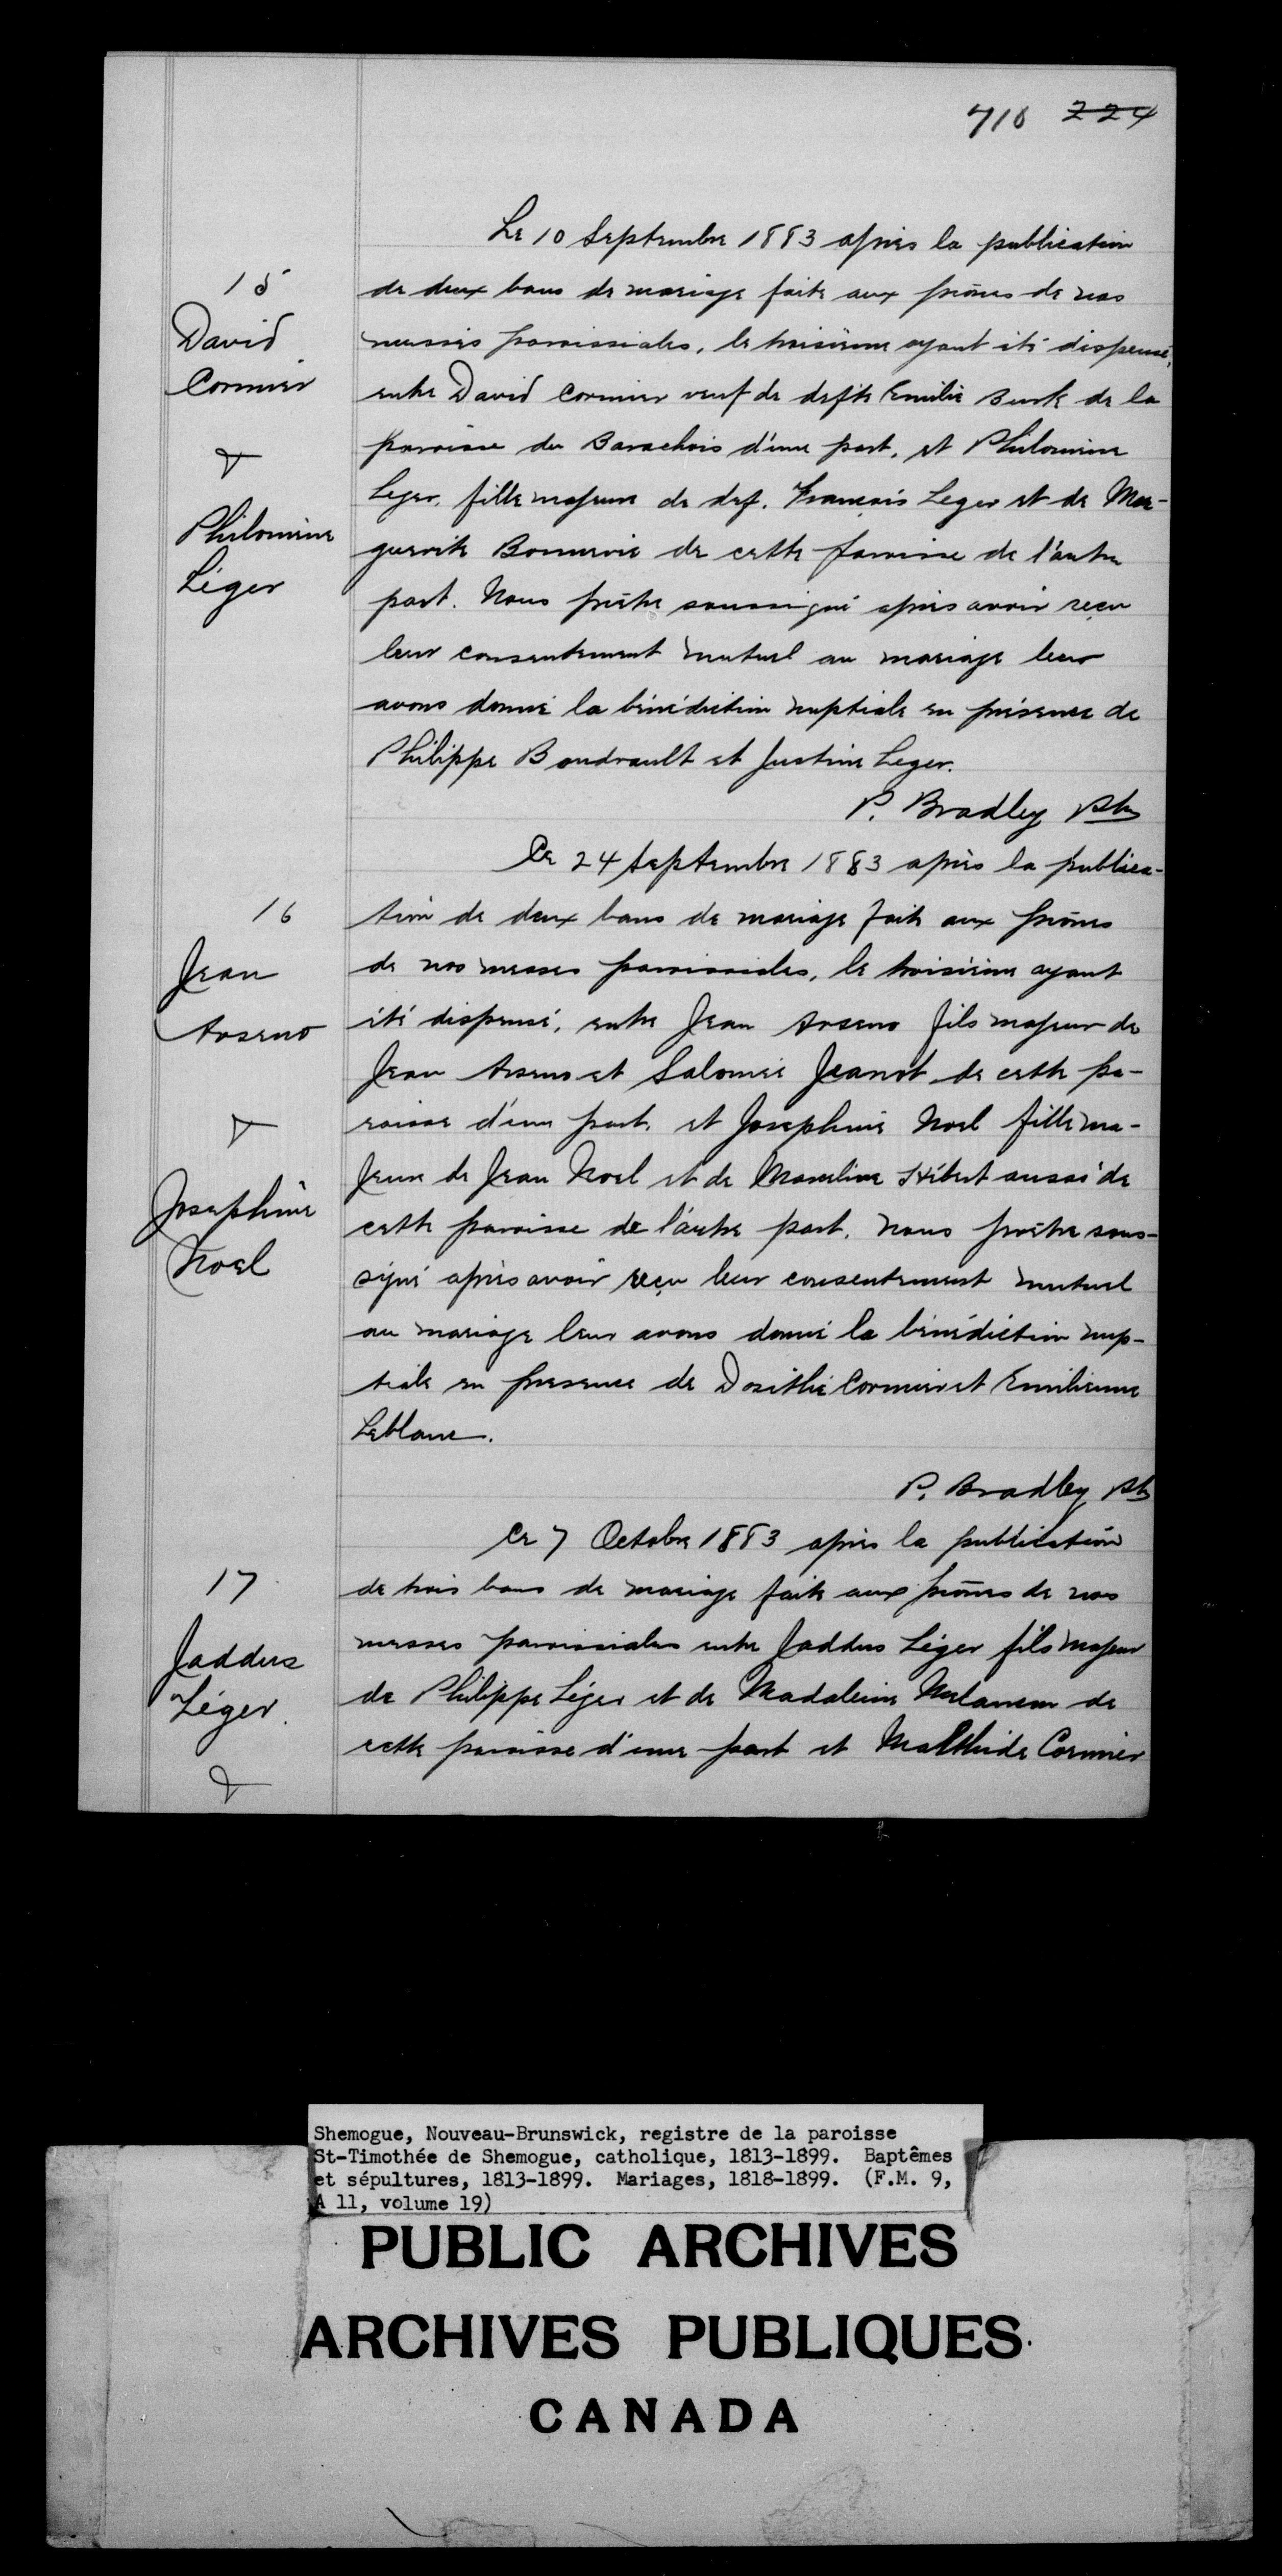 710 224
Le 10 Septembre 1883 après la publication
15
de deux bans de mariage faite aux prônes de nos
David
messes paroissiales, le troisième ayant été dispensé,
Cormier
entre David Cormier veuf de defte Emilie Burk de la
&
paroisse du Barachois d'une part, et Philomène
Leger, fille majeure de def. François Leger et de Mar-
Philomène
guerite Bonnevie de cette paroisse de l'autre
Léger
part. Nous prêtre soussigné après avoir reçu
leur consentement mutuel au mariage leur
avons donné la bénédiction nuptiale en présence de
Philippe Boudrault et Justine Leger.
P. Bradley Ptre
Le 24 Septembre 1883 après la publica-
16
tion de deux bans de mariage faite aux prônes
Jean
de nos messes paroissiales, le troisième ayant
Arseno
été dispensé, entre Jean Arseno fils majeur de
Jean Arseno et Salomée Jeanot de cette pa-
&
roisse d'une part, et Josephine Noel fille ma-
jeure de Jean Noel et de Marceline Hébert aussi de
Josephine
cette paroisse de l'autre part. Nous prêtre sous-
Noel
signé après avoir reçu leur consentement mutuel
au mariage leur avons donné la bénédiction nup-
tiale en presence de Dosithé Cormier et Emilienne
Leblanc.
P. Bradley Ptr
Le 7 Octobre 1883 après la publication
17
de trois bans de mariage faite aux prônes de nos
Jaddus
messes paroissiales entre Jaddus Léger fils majeur
Léger
de Philippe Léger et de Madaleine Melanson de
cette paroisse d'une part et Malthide Cormier
&
Shemogue, Nouveau-Brunswick, registre de la paroisse
St-Timothée de Shemogue, catholique, 1813-1899. Baptêmes
et sépultures, 1813-1899. Mariages, 1818-1899. (F.M. 9,
A 11, volume 19)
PUBLIC ARCHIVES
ARCHIVES PUBLIQUES
CANADA